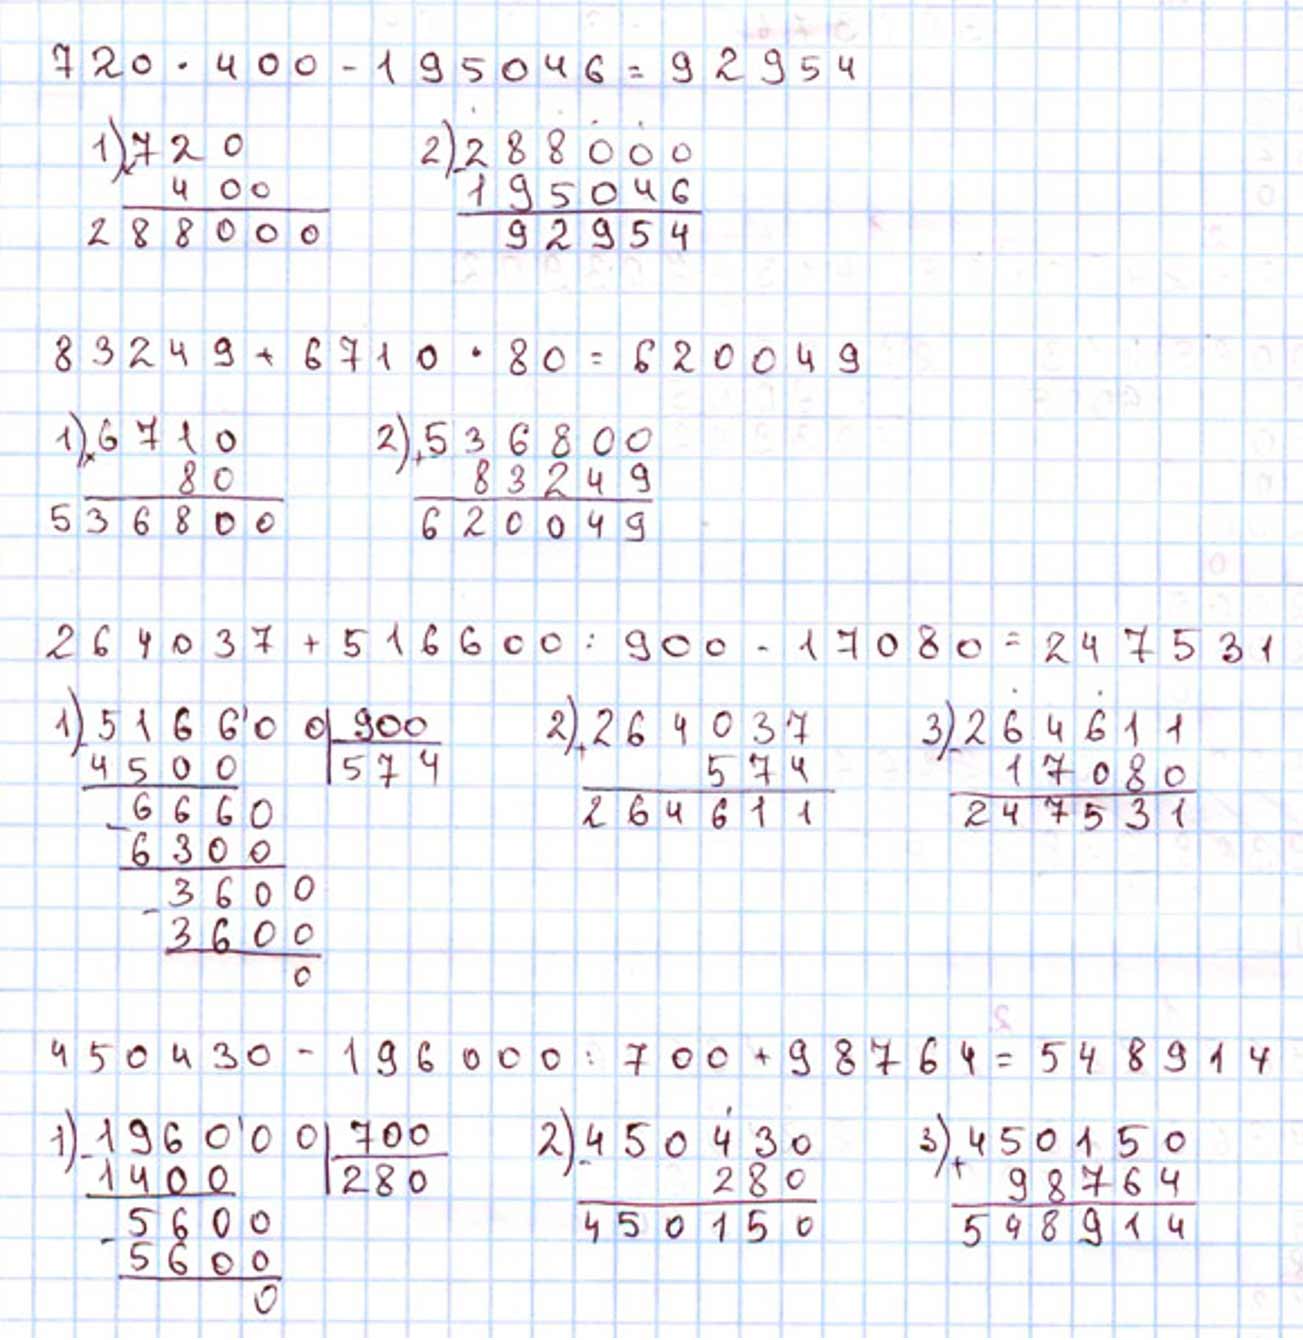 720 · 400 - 195046 = 92954
1) × 720 2) - 288000
400 195046
288000 92954
83249 + 6710 · 80 = 620049
1) × 6710 2) + 536800
80 83249
536800 620049
264037 + 516600 : 900 - 17080 = 247531
1) - 5166'00 | 900 2) + 264037 3) - 264611
4500 | 574 574 17080
- 6660 264611 247531
6300
- 3600
3600
0
450430 - 196000 : 700 + 98764 = 548914
1) - 1960'00 | 700 2) - 450430 3) + 450150
1400 | 280 280 98764
- 5600 450150 548914
5600
0